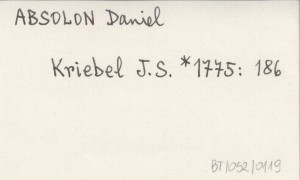 ABSOLON Daniel
Kriebel J.S. *1775: 186
BT/052/0119